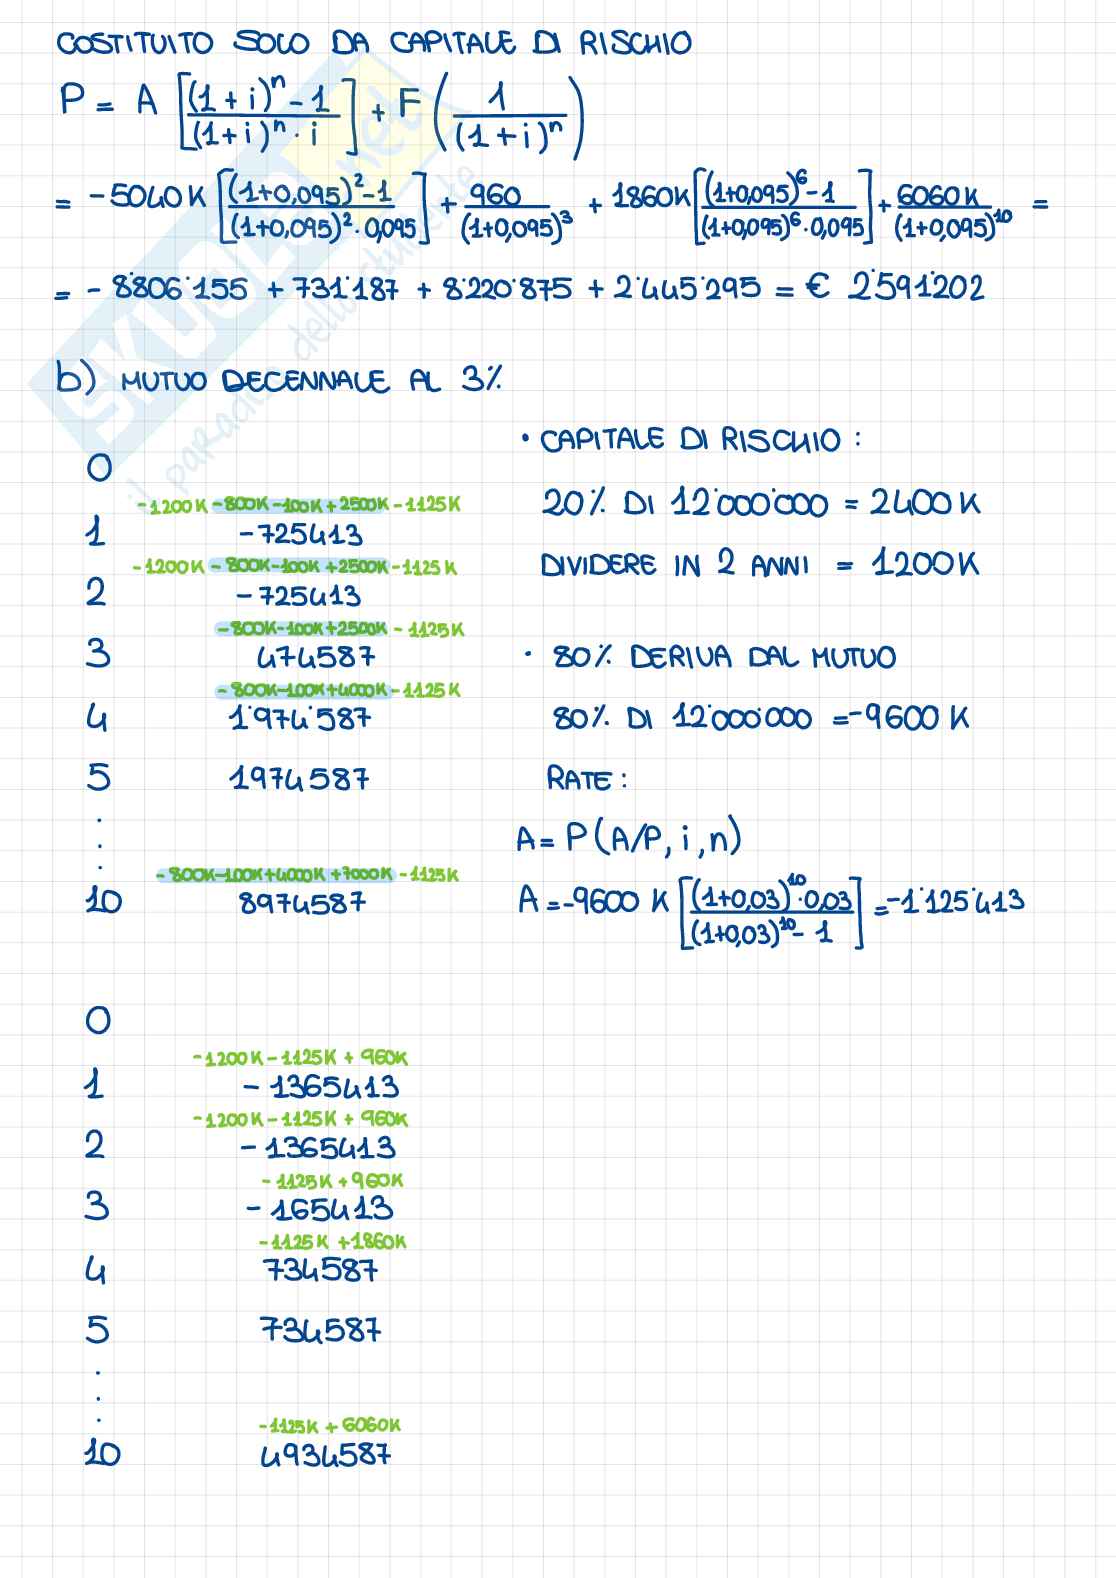 COSTITUITO SOLO DA CAPITALE DI RISCHIO
P = A [((1+i)^n - 1)/((1+i)^n · i)] + F (1/(1+i)^n)
= -5040K [((1+0,095)^2 - 1)/((1+0,095)^2 · 0,095)] + 960/(1+0,095)^3 + 1860K [((1+0,095)^6 - 1)/((1+0,095)^6 · 0,095)] + 6060K/(1+0,095)^10 =
= - 8'806'155 + 731'187 + 8'220'875 + 2'445'295 = € 2'591'202
b) MUTUO DECENNALE AL 3%
0
-1200K -800K -100K +2500K -1125K
1 -725413
-1200K -800K-100K +2500K -1125K
2 -725413
-800K-100K+2500K -1125K
3 474587
-800K-100K+4000K -1125K
4 1'974'587
5 1974587
. . .
-800K-100K+4000K +7000K -1125K
10 8974587
• CAPITALE DI RISCHIO :
20% DI 12'000'000 = 2400 K
DIVIDERE IN 2 ANNI = 1200K
• 80% DERIVA DAL MUTUO
80% DI 12'000'000 = -9600 K
RATE :
A = P (A/P, i, n)
A = -9600 K [((1+0,03)^10 · 0,03)/((1+0,03)^10 - 1)] = -1'125'413
0
-1200K -1125K + 960K
1 -1365413
-1200K -1125K + 960K
2 -1365413
-1125K +960K
3 -165413
-1125K +1860K
4 734587
5 734587
. . .
-1125K + 6060K
10 4934587
SKUOLA.net
il paradiso dello studente